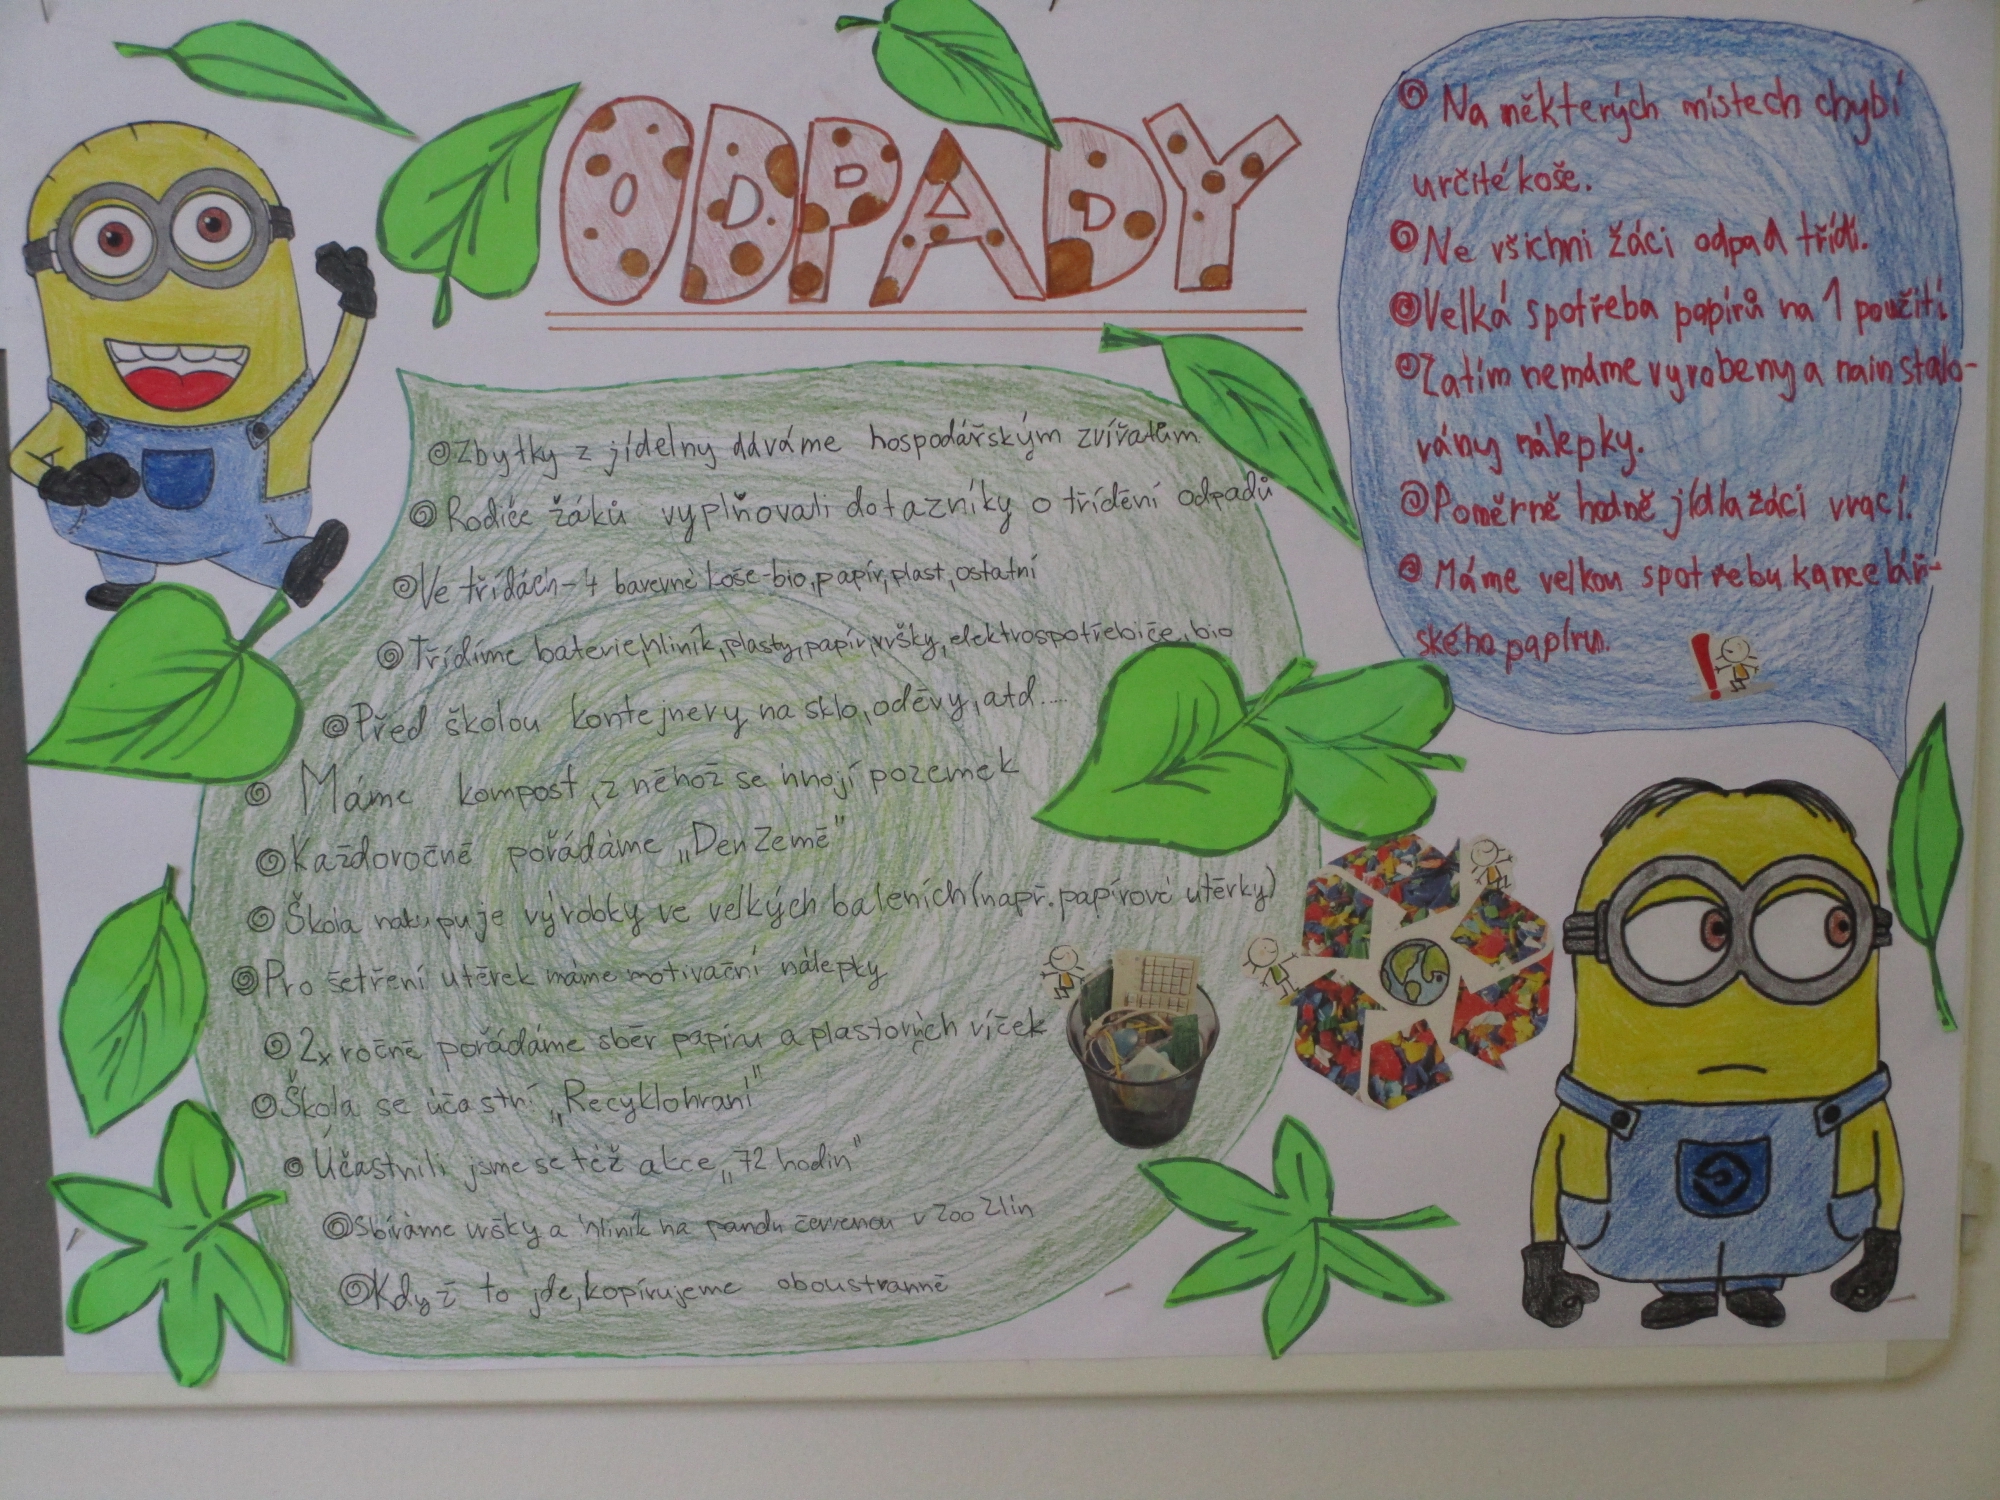 ODPADY
Zbytky z jídelny dáváme hospodářským zvířatům
Rodiče žáků vyplňovali dotazníky o třídění odpadů
Ve třídách-4 barevné koše-bio, papír, plast, ostatní
Třídíme baterie, hliník, plasty, papír, vršky, elektrospotřebiče, bio
Před školou kontejnery na sklo, oděvy, atd....
Máme kompost, z něhož se hnojí pozemek
Každoročně pořádáme „Den Země"
Škola nakupuje výrobky ve velkých baleních (např. papírové utěrky)
Pro šetření utěrek máme motivační nálepky
2x ročně pořádáme sběr papíru a plastových víček
Škola se účastní „Recyklohraní"
Účastnili jsme se též akce „72 hodin"
Sbíráme vršky a hliník na pandu červenou v Zoo Zlín
Když to jde, kopírujeme oboustranně
Na některých místech chybí
určité koše.
Ne všichni žáci odpad třídí.
Velká spotřeba papírů na 1 použití
Zatím nemáme vyrobeny a nainstalo-
vány nálepky.
Poměrně hodně jídla žáci vrací.
Máme velkou spotřebu kancelář-
ského papíru.
!